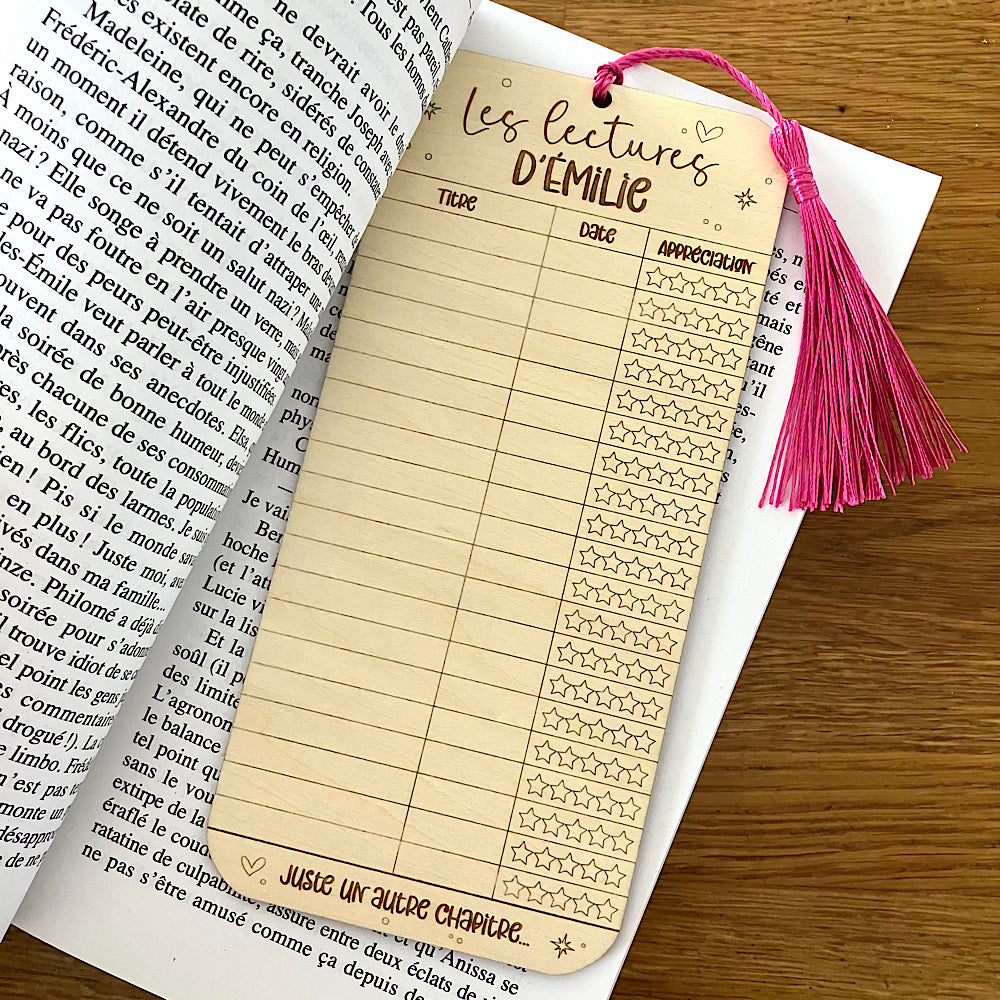 ient Cad
est pas pareil
ne devrait avoir le d
late de rire, sidérés de constater
comme ça, tranche Joseph avec
es existent encore en religion.
Madeleine, qui ne peut s'empêcher d
Frédéric-Alexandre du coin de l'œil,
un moment il détend vivement le bras
raison, comme s'il tentait d'attraper une
À moins que ce ne soit un salut nazi?
nazi? Elle songe à prendre un verre,
ne va pas foutre en l'air presque vingt
e pour des peurs peut-être injustifiées.
es-Émilie veut parler à tout le monde
ouvent dans ses anecdotes. Elsa,
la soirée de bonne humeur,
près chacune de ses consommat
res, les flics, toute la populat
, au bord des larmes. Je suis
ien! Pis si le monde sav
en plus! Juste moi,
ivés dans ma famille...
inze. Philomé a déjà
soirée pour s'adonn
il trouve idiot de se
el point les gens
s commentaire
drogué!). La
e limbo. Fréd
n'est pas
monte un
désappro
de ne
Les lectures
D'ÉMILIE
Titre
Date
Appréciation
Juste un autre chapitre...
es, n
és et
té et
mais
rêne
tant
u'il
nor
phy
C
Hum
Je vai
Ber
hoche
(et l'at
Lucie vi
sur la lis
Et la
soûl (il p
des limite
L'agronom
le balance
tel point qu
sans le vou
extirpe de la
éraflé le coud
ratatine de culpabilité, assure entre deux éclats de
ne pas s'être amusé comme ça depuis de
et qu'Anissa se